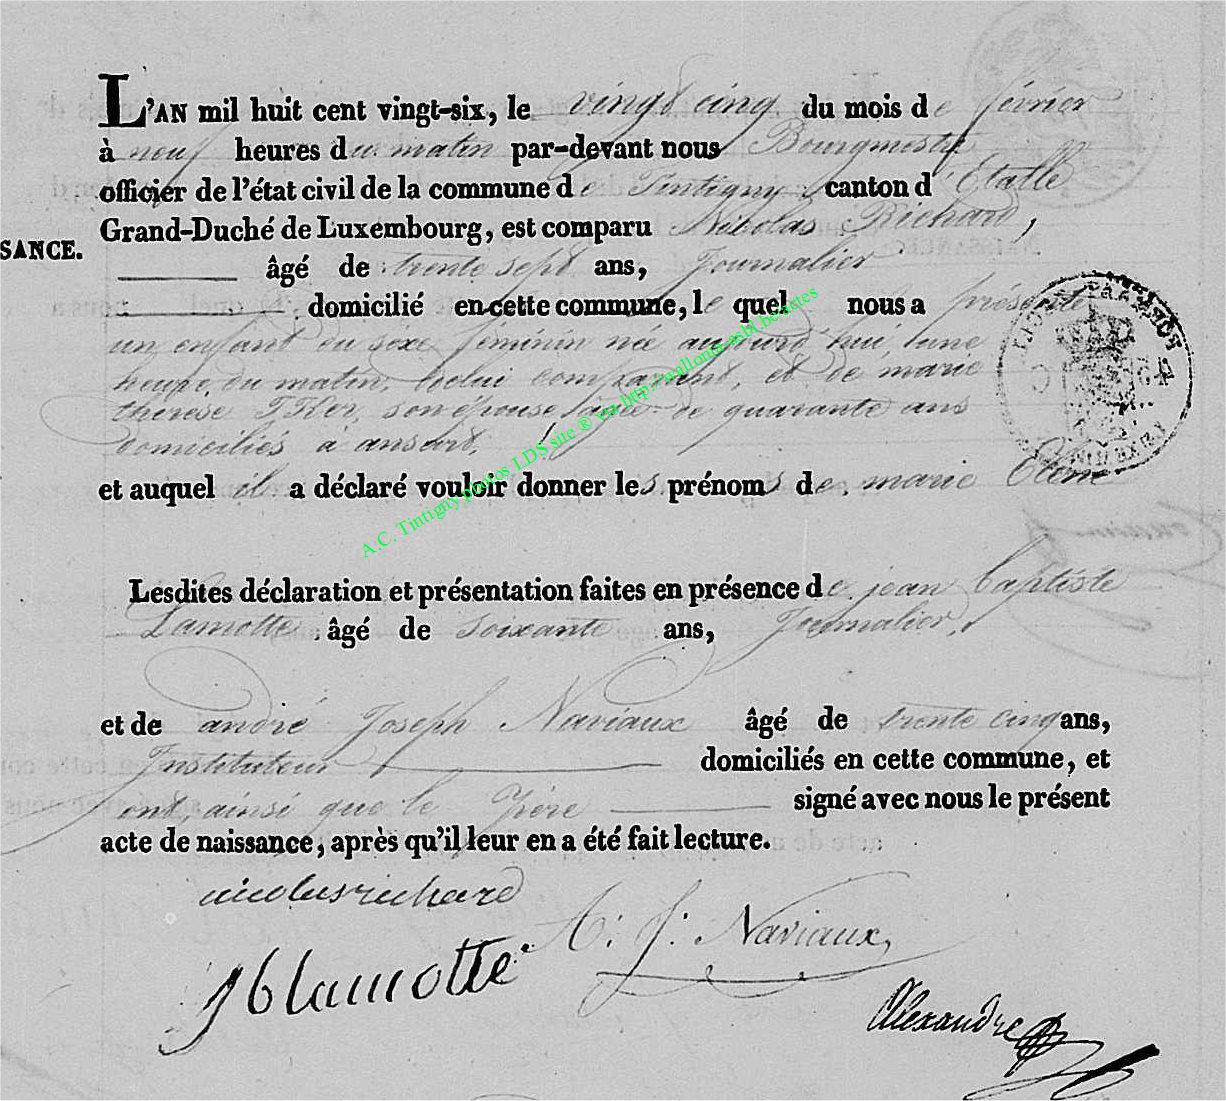 L'AN mil huit cent vingt-six, le vingt cinq du mois de février
à neuf heures du matin par-devant nous Bourgmestre
officier de l'état civil de la commune de Tintigny, canton d'Etalle
Grand-Duché de Luxembourg, est comparu Nicolas Richard,
SANCE.
âgé de trente sept ans, Journalier
domicilié en cette commune, le quel nous a présenté
un enfant du sexe féminin née aujourd'hui, à une
heure du matin, de lui comparant et de marie
thérèse son épouse, âgée de quarante ans
domiciliés à ansart,
et auquel il a déclaré vouloir donner les prénoms de marie
Lesdites déclaration et présentation faites en présence de jean baptiste
Lamotte, âgé de soixante ans, Journalier,
et de andré Joseph Naviaux âgé de trente cinq ans,
Instituteur domiciliés en cette commune, et
ont, ainsi que le Père signé avec nous le présent
acte de naissance, après qu'il leur en a été fait lecture.
nicolas richard
A: J: Naviaux,
J b lamotte
Alexandre
A.C. Tintigny photos LDS site ® via http://wallonia-asbl.be/astes